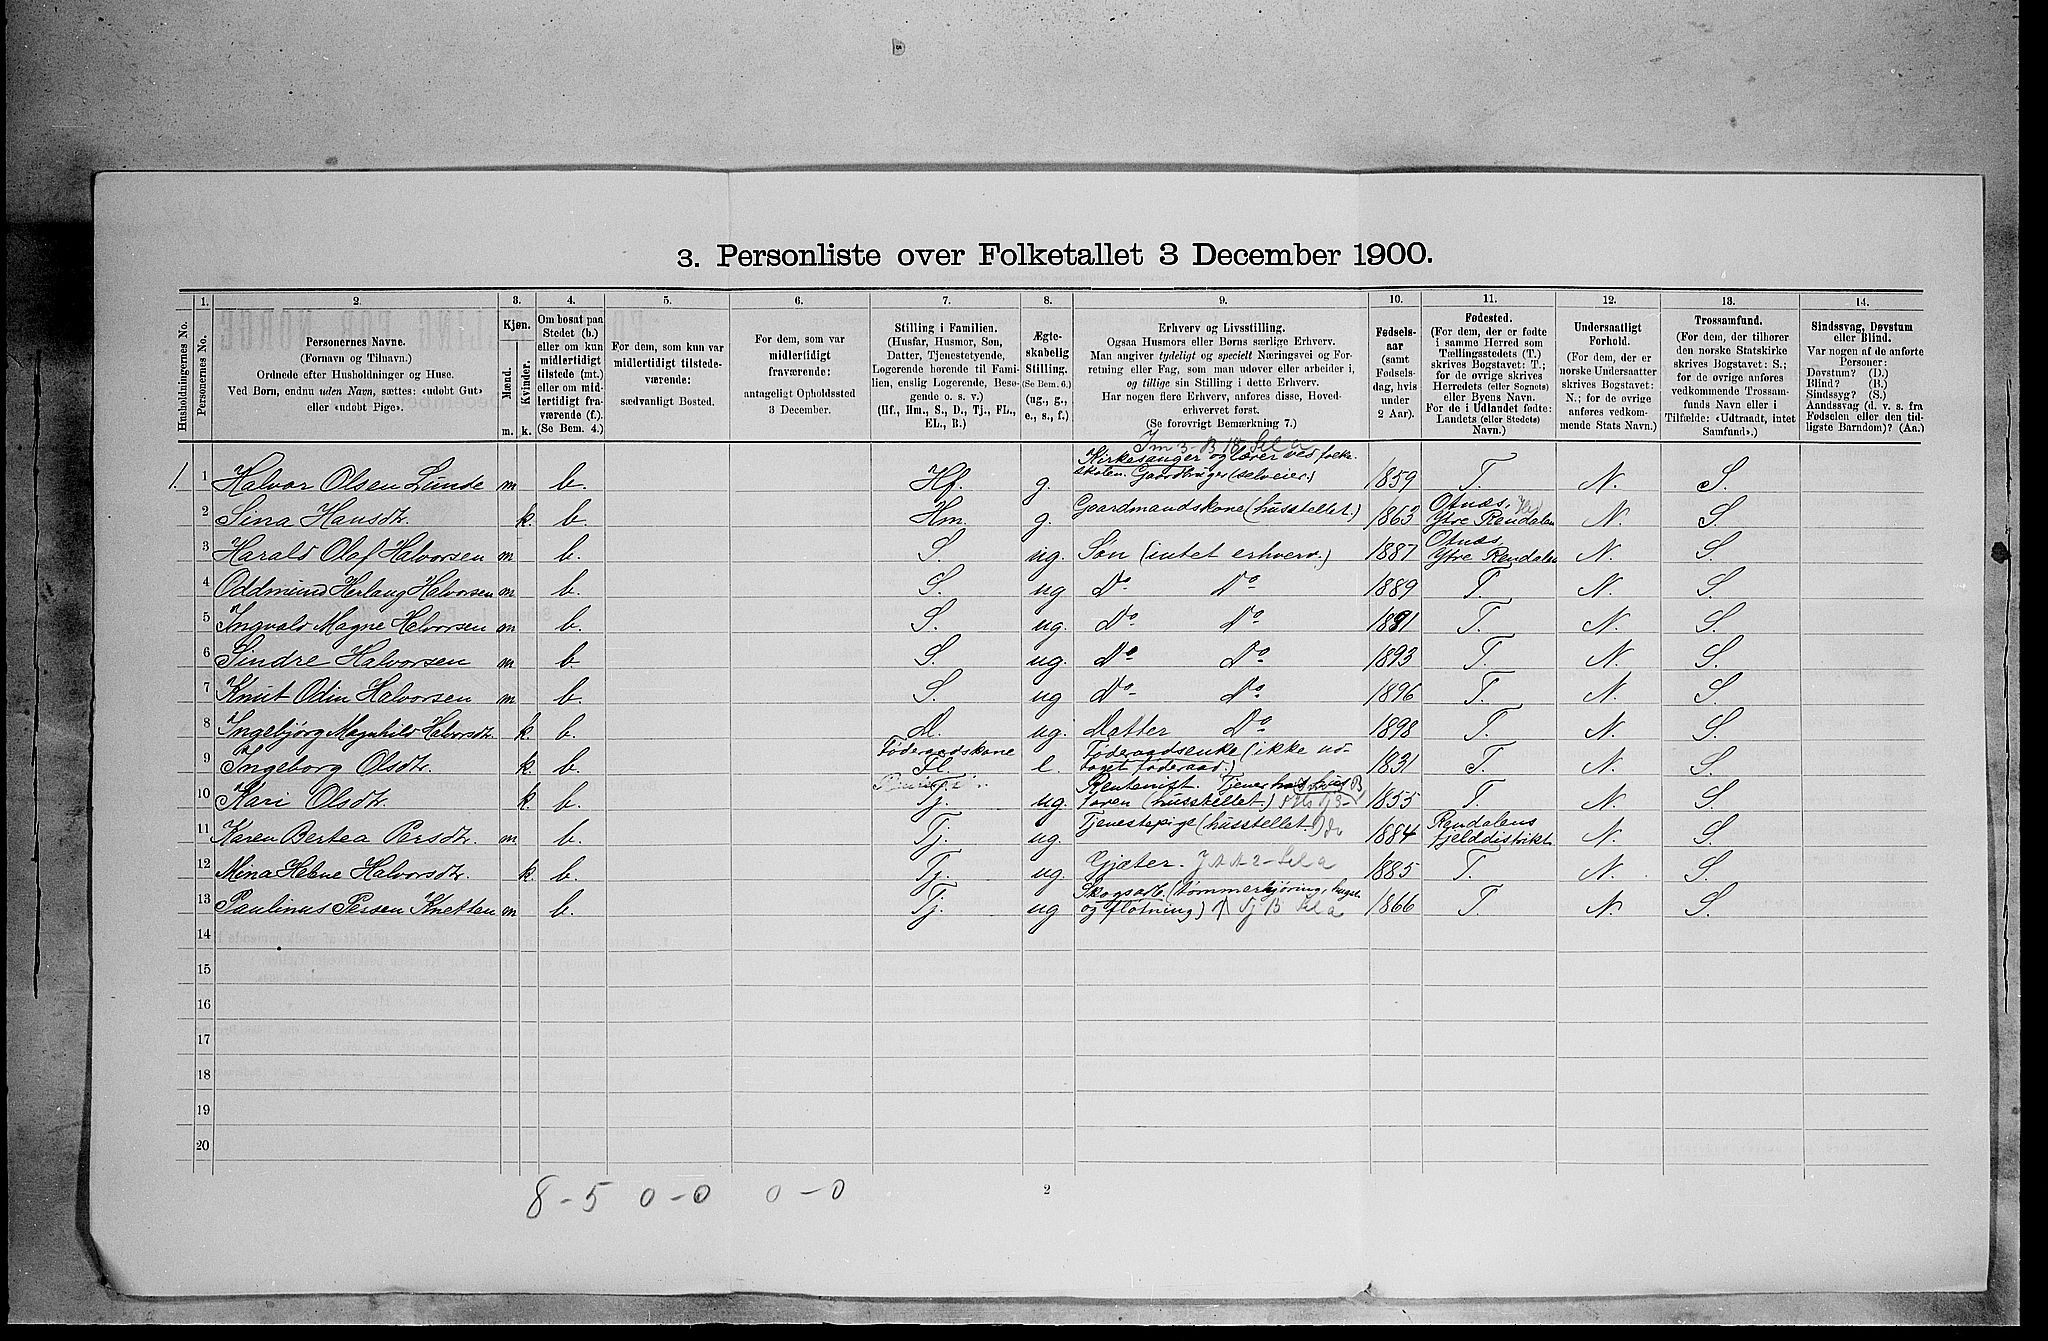 3. Personliste over Folketallet 3 December 1900.
Husholdningernes No.
1. Personernes No.
2. Personernes Navne. (Fornavn og Tilnavn.) Ordnede efter Husholdninger og Huse. Ved Børn, endnu uden Navn, sættes: «udøbt Gut» eller «udøbt Pige».
3. Kjøn. Mænd. m. Kvinder. k.
4. Om bosat paa Stedet (b.) eller om kun midlertidigt tilstede (mt.) eller om midlertidigt fraværende (f.). (Se Bem. 4.)
5. For dem, som kun var midlertidigt tilstedeværende: sædvanligt Bosted.
6. For dem, som var midlertidigt fraværende: antageligt Opholdssted 3 December.
7. Stilling i Familien. (Husfar, Husmor, Søn, Datter, Tjenestetyende, Logerende hørende til Familien, enslig Logerende, Besøgende o. s. v.) (Hf., Hm., S., D., Tj., FL., EL., B.)
8. Ægteskabelig Stilling. (Se Bem. 6.) (ug., g., e., s., f.)
9. Erhverv og Livsstilling. Ogsaa Husmors eller Børns særlige Erhverv. Man angiver tydeligt og specielt Næringsvei og Forretning eller Fag, som man udøver eller arbeider i, og tillige sin Stilling i dette Erhverv. Har nogen flere Erhverv, anføres disse, Hovederhvervet først. (Se forøvrigt Bemærkning 7.)
10. Fødselsaar (samt Fødselsdag, hvis under 2 Aar).
11. Fødested. (For dem, der er fødte i samme Herred som Tællingsstedets (T.) skrives Bogstavet: T.; for de øvrige skrives Herredets (eller Sognets) eller Byens Navn. For de i Udlandet fødte: Landets (eller Stedets) Navn.)
12. Undersaatligt Forhold. (For dem, der er norske Undersaatter skrives Bogstavet: N.; for de øvrige anføres vedkommende Stats Navn.)
13. Trossamfund. (For dem, der tilhører den norske Statskirke skrives Bogstavet: S.; for de øvrige anføres vedkommende Trossamfunds Navn eller i Tilfælde: «Udtraadt, intet Samfund».)
14. Sindssvag, Døvstum eller Blind. Var nogen af de anførte Personer: Døvstum? (D.) Blind? (B.) Sindssyg? (S.) Aandssvag (d. v. s. fra Fødselen eller den tidligste Barndom)? (Aa.)
1. 1 Halvor Olsen Lunde m b. Hf. g. Kirkesanger og lærer ved folkeskolen. Gaardbruger (selveier.) 1859 T. N. S.
2 Sina Hansdtr. k. b. Hm. g. Gaardmandskone (husstellet.) 1863 Otnæs, Ytre Rendalen N. S.
3 Harald Olaf Halvorsen m b. S. ug. Søn (intet erhverv.) 1887 Otnæs, Ytre Rendalen N. S.
4 Oddmund Herlaug Halvorsen m b. S. ug Do Do 1889 T. N. S.
5 Ingvald Magne Halvorsen m b. S. ug. Do Do 1891 T. N. S.
6 Sindre Halvorsen m b S. ug. Do Do 1893 T. N. S.
7 Knut Odin Halvorsen m b. S. ug Do Do 1896 T. N. S.
8 Ingebjørg Magnhild Halvorsdtr. k. b. D. ug. Datter Do 1898 T. N. S.
9 Ingeborg Olsdtr. k. b. Føderaadskone Fl. e. Føderaadsenke (ikke udtaget føderaad.) 1831 T. N. S.
10 Kari Olsdtr. k b. Tj. ug. Rentenist. Tjener hos husfaren (husstellet.) 1855 T. N. S.
11 Karen Bertea Persdtr. m b. Tj. ug. Tjenestepige (husstellet.) do 1884 Rendalens fjelddistrikt N. S.
12 Mina Helene Halvorsdtr. k. b. Tj. ug. Gjæter. 1885 T. N. S.
13 Paulinus Persen Knetten m b. Tj. ug Skogsarb. (tømmerkjøring, hugst og fløtning) 1866 T. N. S.
14
15
16
17
18
19
20
8 - 5 0 - 0 0 - 0
2